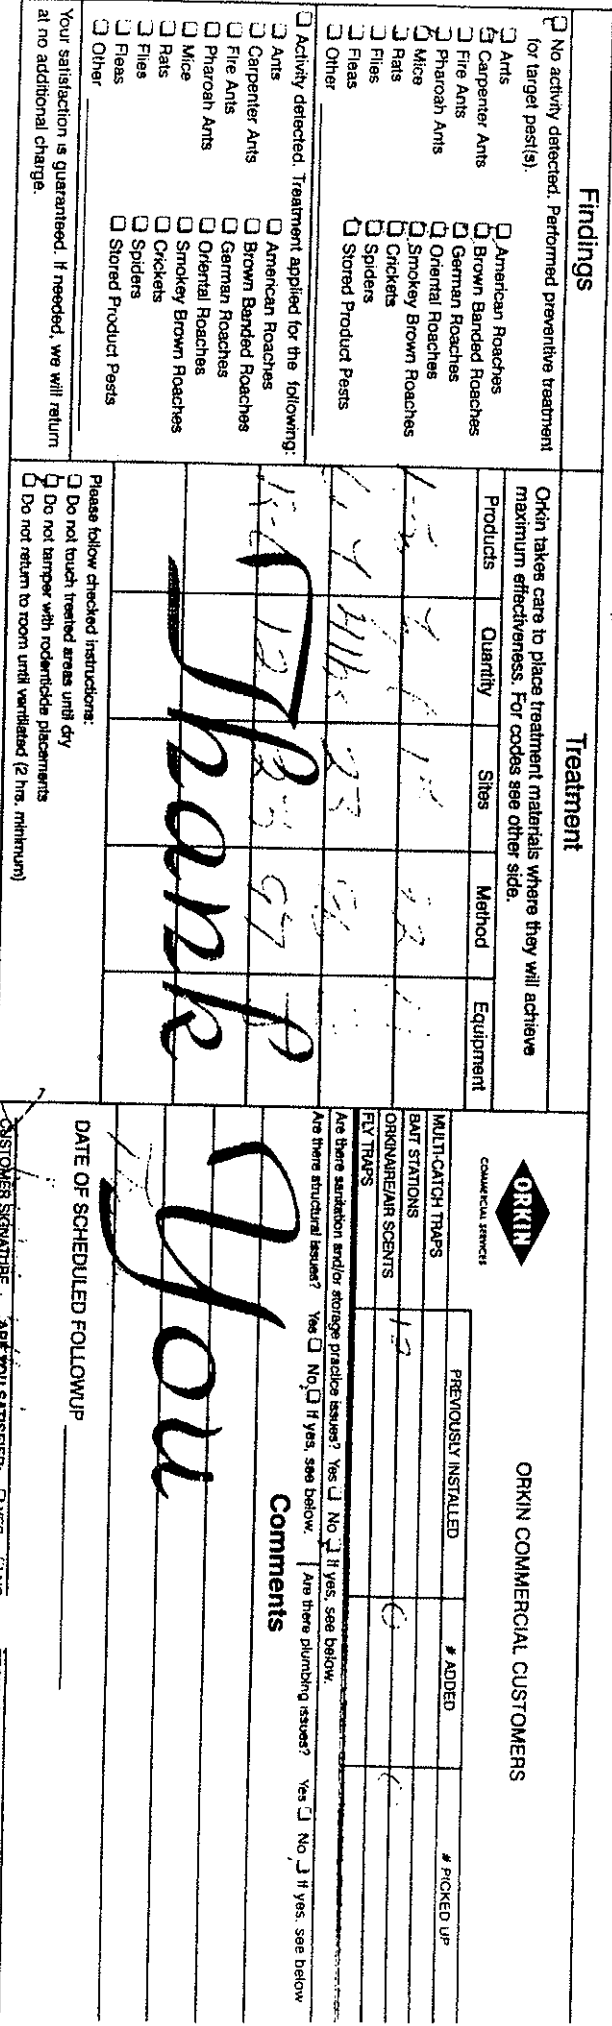 Findings
No activity detected. Performed preventive treatment
for target pest(s).
Ants
American Roaches
Carpenter Ants
Brown Banded Roaches
Fire Ants
German Roaches
Pharoah Ants
Oriental Roaches
Mice
Smokey Brown Roaches
Rats
Crickets
Flies
Spiders
Fleas
Stored Product Pests
Other
Activity detected. Treatment applied for the following:
Ants
American Roaches
Carpenter Ants
Brown Banded Roaches
Fire Ants
German Roaches
Pharoah Ants
Oriental Roaches
Mice
Smokey Brown Roaches
Rats
Crickets
Flies
Spiders
Fleas
Stored Product Pests
Other
Your satisfaction is guaranteed. If needed, we will return
at no additional charge.
Treatment
Orkin takes care to place treatment materials where they will achieve
maximum effectiveness. For codes see other side.
Products Quantity Sites Method Equipment
12
Thank You
Please follow checked instructions:
Do not touch treated areas until dry
Do not tamper with rodenticide placements
Do not return to room until ventilated (2 hrs. minimum)
ORKIN
COMMERCIAL SERVICES
ORKIN COMMERCIAL CUSTOMERS
PREVIOUSLY INSTALLED # ADDED # PICKED UP
MULTI-CATCH TRAPS
BAIT STATIONS
ORKINAIRE/AIR SCENTS
FLY TRAPS
Are there sanitation and/or storage practice issues? Yes No If yes, see below.
Are there structural issues? Yes No If yes, see below. Are there plumbing issues? Yes No If yes, see below
Comments
DATE OF SCHEDULED FOLLOWUP
CUSTOMER SIGNATURE